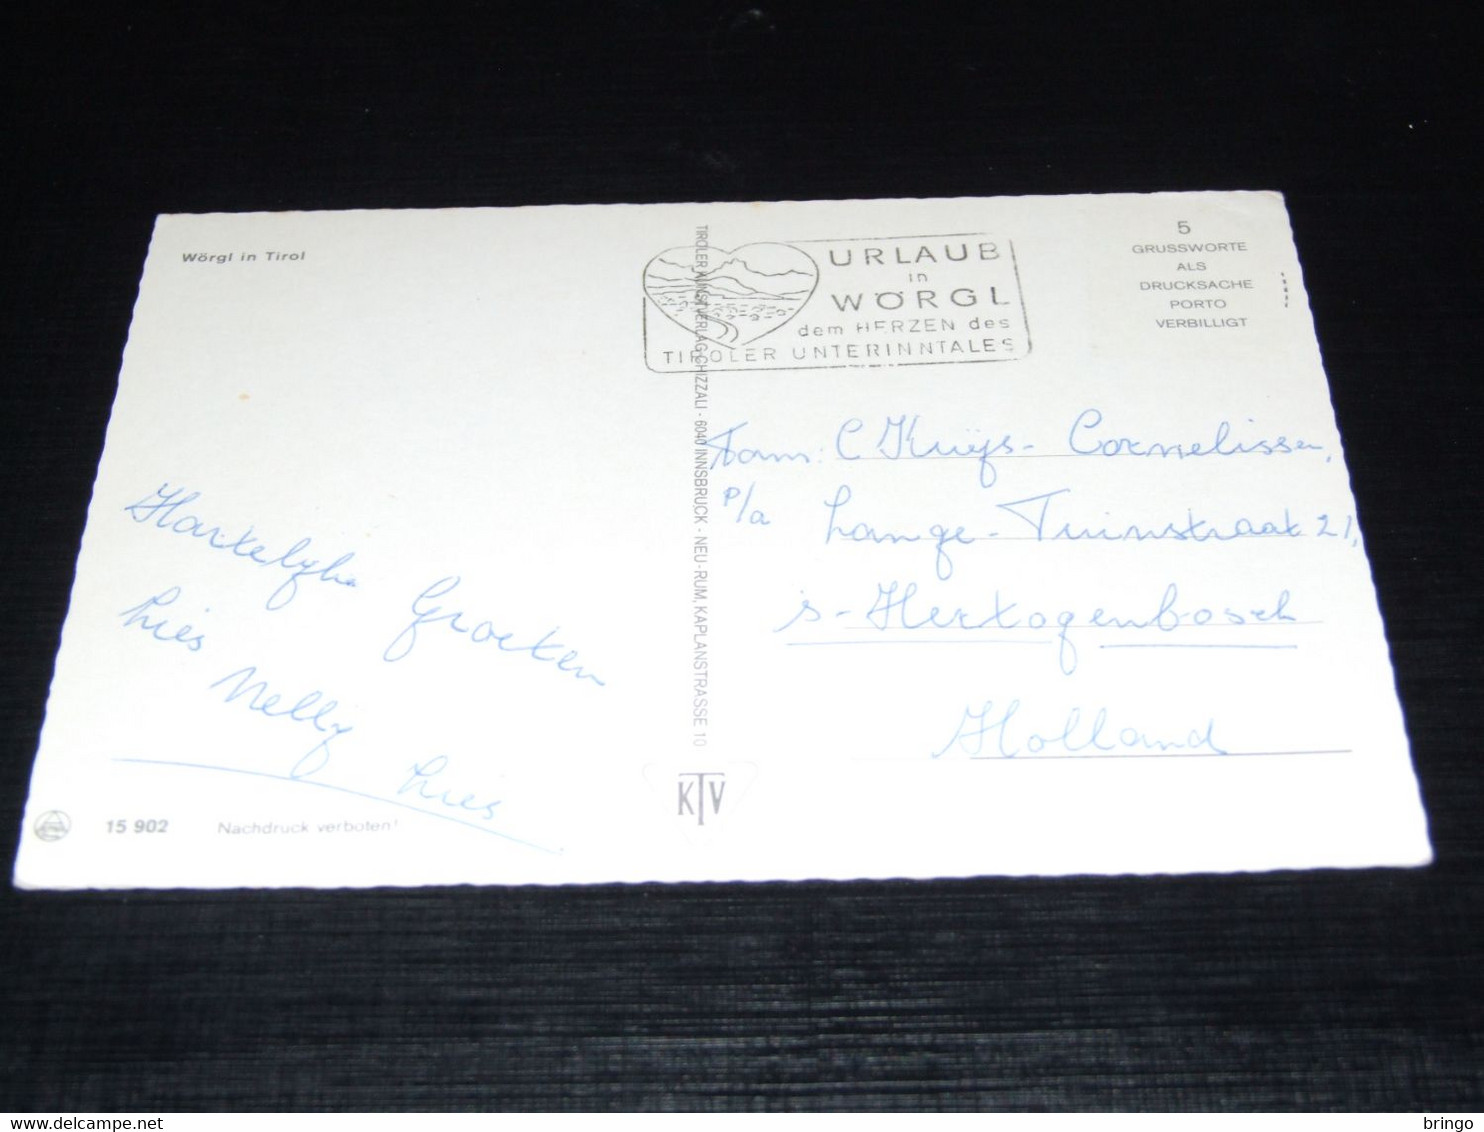 Wörgl in Tirol
Hartelyke Groeten
Lies Nelly Lies
15 902 Nachdruck verboten!
TIROLER KUNSTVERLAG CHIZZALI - 6040 INNSBRUCK - NEU-RUM, KAPLANSTRASSE 10
KTV
URLAUB
in
WÖRGL
dem HERZEN des
TIROLER UNTERINNTALES
5
GRUSSWORTE
ALS
DRUCKSACHE
PORTO
VERBILLIGT
Fam: C Kuÿs - Cornelissen,
p/a Lange - Tuinstraat 21,
s-Hertogenbosch
Holland
delcampe.net
bringo